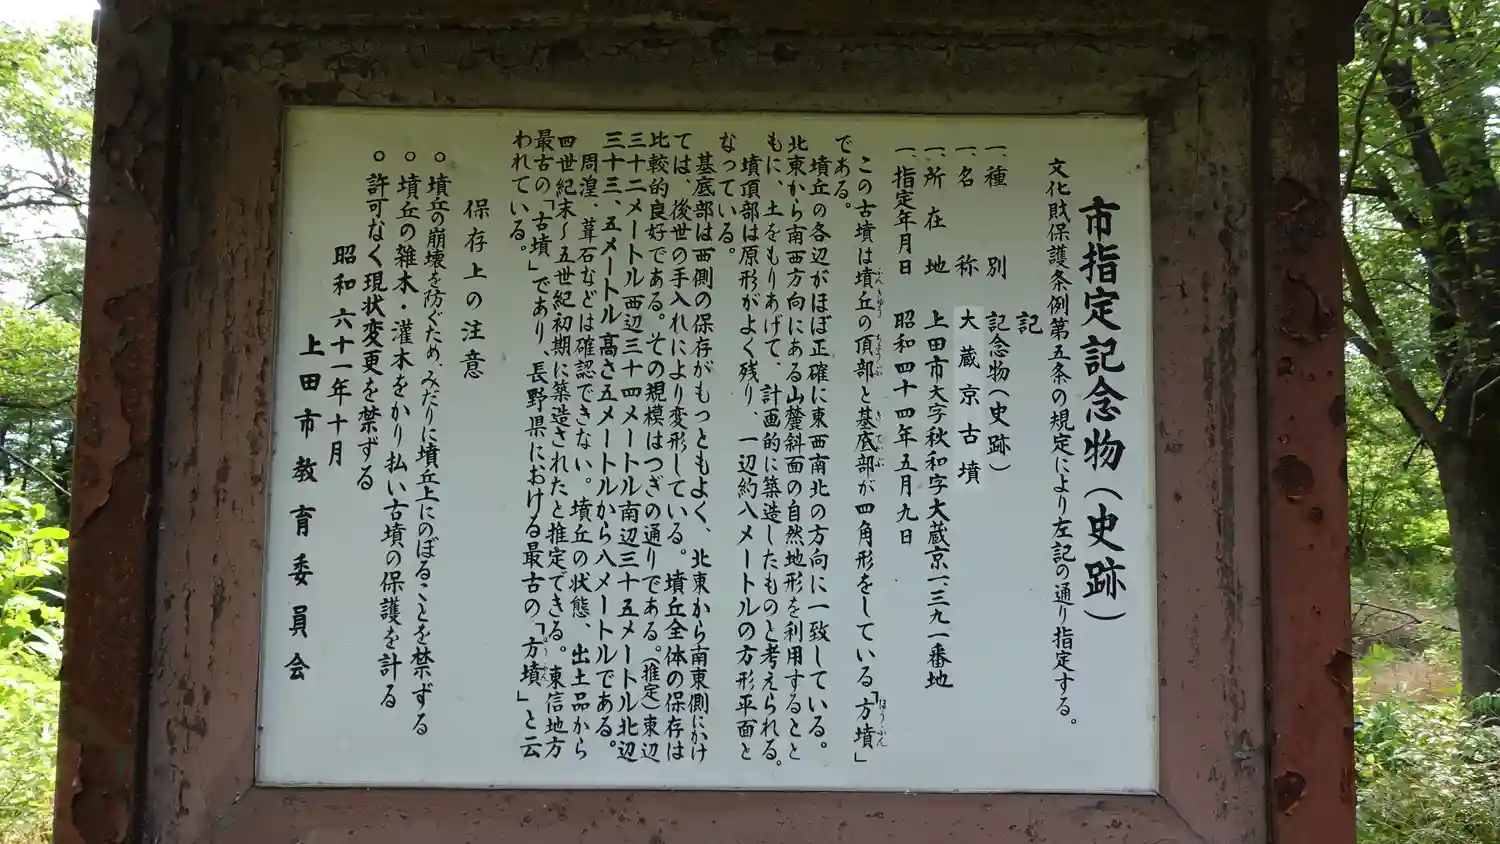 市指定記念物(史跡)
文化財保護条例第五条の規定により左記の通り指定する。
記
一、種別 記念物(史跡)
一、名称 大蔵京古墳
一、所在地 上田市大字秋和字大蔵京一三九一番地
一、指定年月日 昭和四十四年五月九日
この古墳は墳丘の頂部と基底部が四角形をしている「方墳」
である。
墳丘の各辺がほぼ正確に東西南北の方向に一致している。
北東から南西方向にある山麓斜面の自然地形を利用するとと
もに、土をもりあげて、計画的に築造したものと考えられる。
墳頂部は原形がよく残り、一辺約八メートルの方形平面と
なっている。
基底部は西側の保存がもっともよく、北東から南東側にかけ
ては、後世の手入れにより変形している。墳丘全体の保存は
比較的良好である。その規模はつぎの通りである。(推定)東辺
三十二メートル西辺三十四メートル南辺三十五メートル北辺
三十三、五メートル高さ五メートルから八メートルである。
周湟、葺石などは確認できない。墳丘の状態、出土品から
四世紀末〜五世紀初期に築造されたと推定できる。東信地方
最古の「古墳」であり、長野県における最古の「方墳」と云
われている。
保存上の注意
○墳丘の崩壊を防ぐため、みだりに墳丘上にのぼることを禁ずる
○墳丘の雑木・灌木をかり払い古墳の保護を計る
○許可なく現状変更を禁ずる
昭和六十一年十月
上田市教育委員会